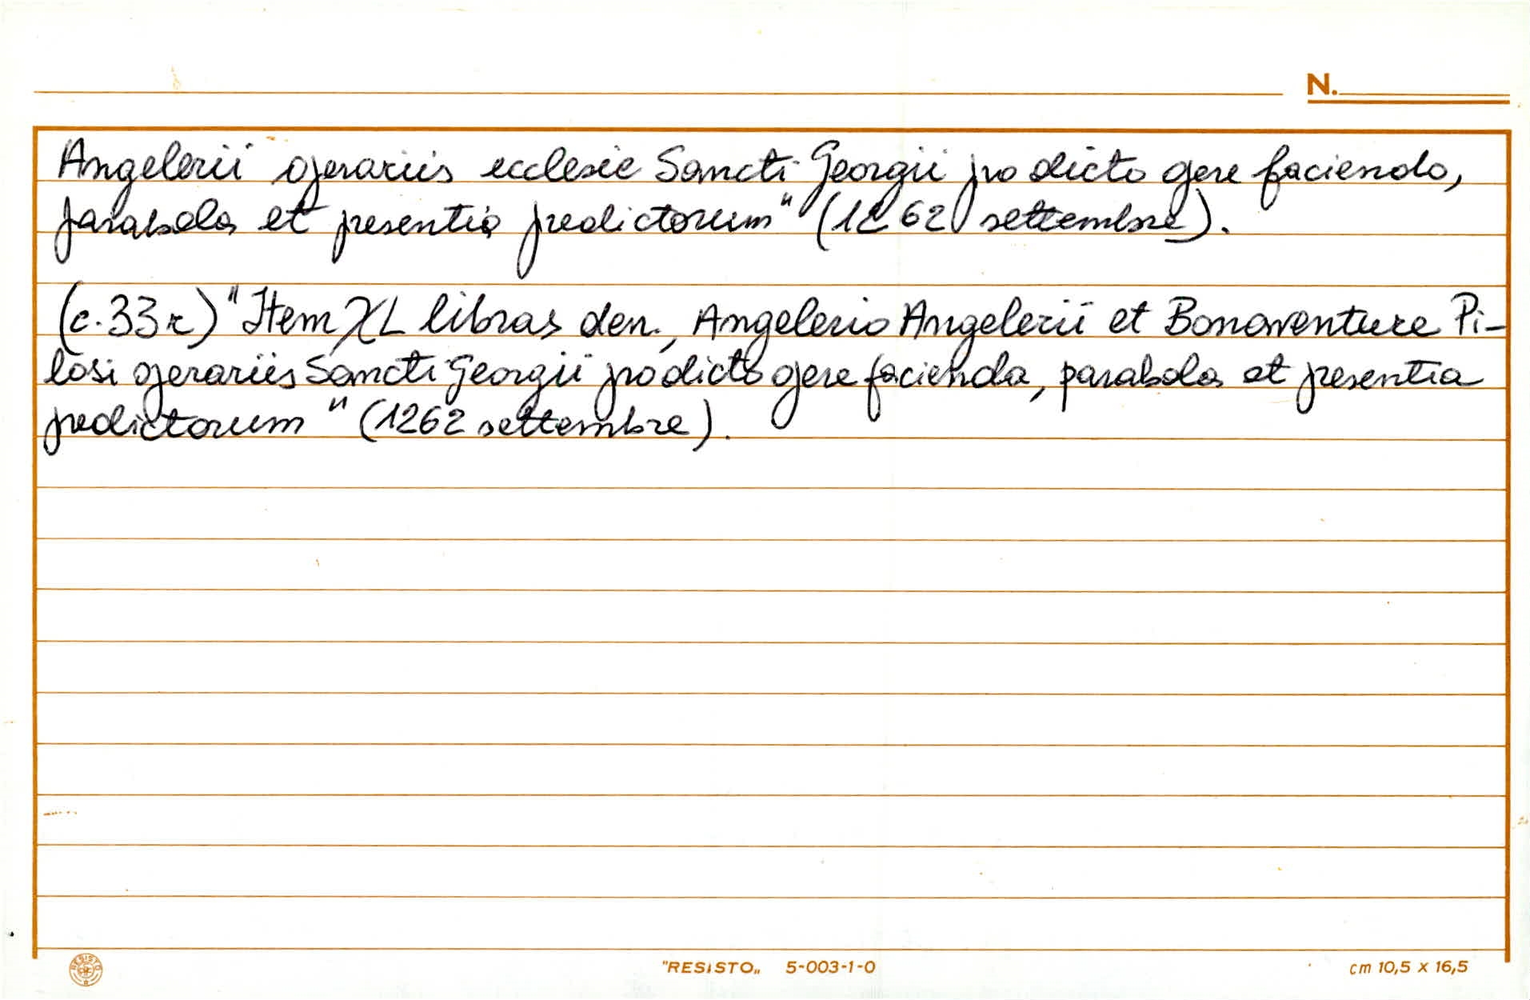 N.
Angelerii operariis ecclesie Sancti Georgii pro dicto opere faciendo,
parabola et presentia predictorum" (1262 settembre).
(c. 33 r) "Item XL libras den., Angelerio Angelerii et Bonaventure Pi-
losi operariis Sancti Georgii pro dicto opere facienda, parabola et presentia
predictorum" (1262 settembre).
"RESISTO„ 5-003-1-0
cm 10,5 x 16,5